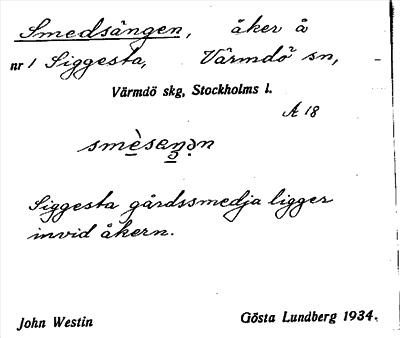 Smedsängen, åker å
nr 1 Siggesta, Värmdö sn,
Värmdö skg, Stockholms l.
A 18
Siggesta gårdssmedja ligger
invid åkern.
John Westin
Gösta Lundberg 1934.